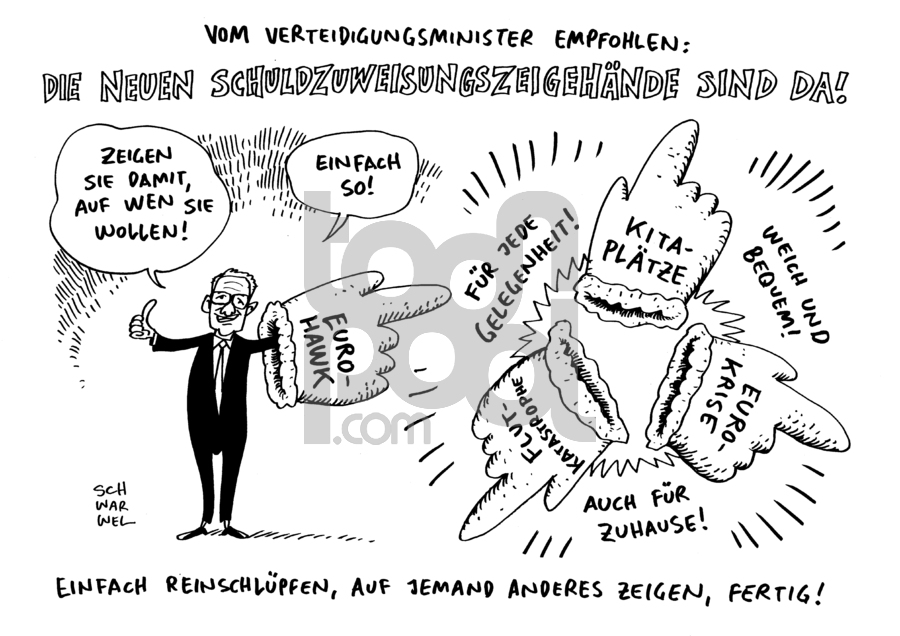 VOM VERTEIDIGUNGSMINISTER EMPFOHLEN:
DIE NEUEN SCHULDZUWEISUNGSZEIGEHÄNDE SIND DA!
ZEIGEN
SIE DAMIT,
AUF WEN SIE
WOLLEN!
EINFACH
SO!
EURO-
HAWK
FÜR JEDE
GELEGENHEIT!
KITA-
PLÄTZE
WEICH UND
BEQUEM!
FLUT-
KATASTROPHE
EURO-
KRISE
AUCH FÜR
ZUHAUSE!
toonpool
.com
SCH
WAR
WEL
EINFACH REINSCHLÜPFEN, AUF JEMAND ANDERES ZEIGEN, FERTIG!